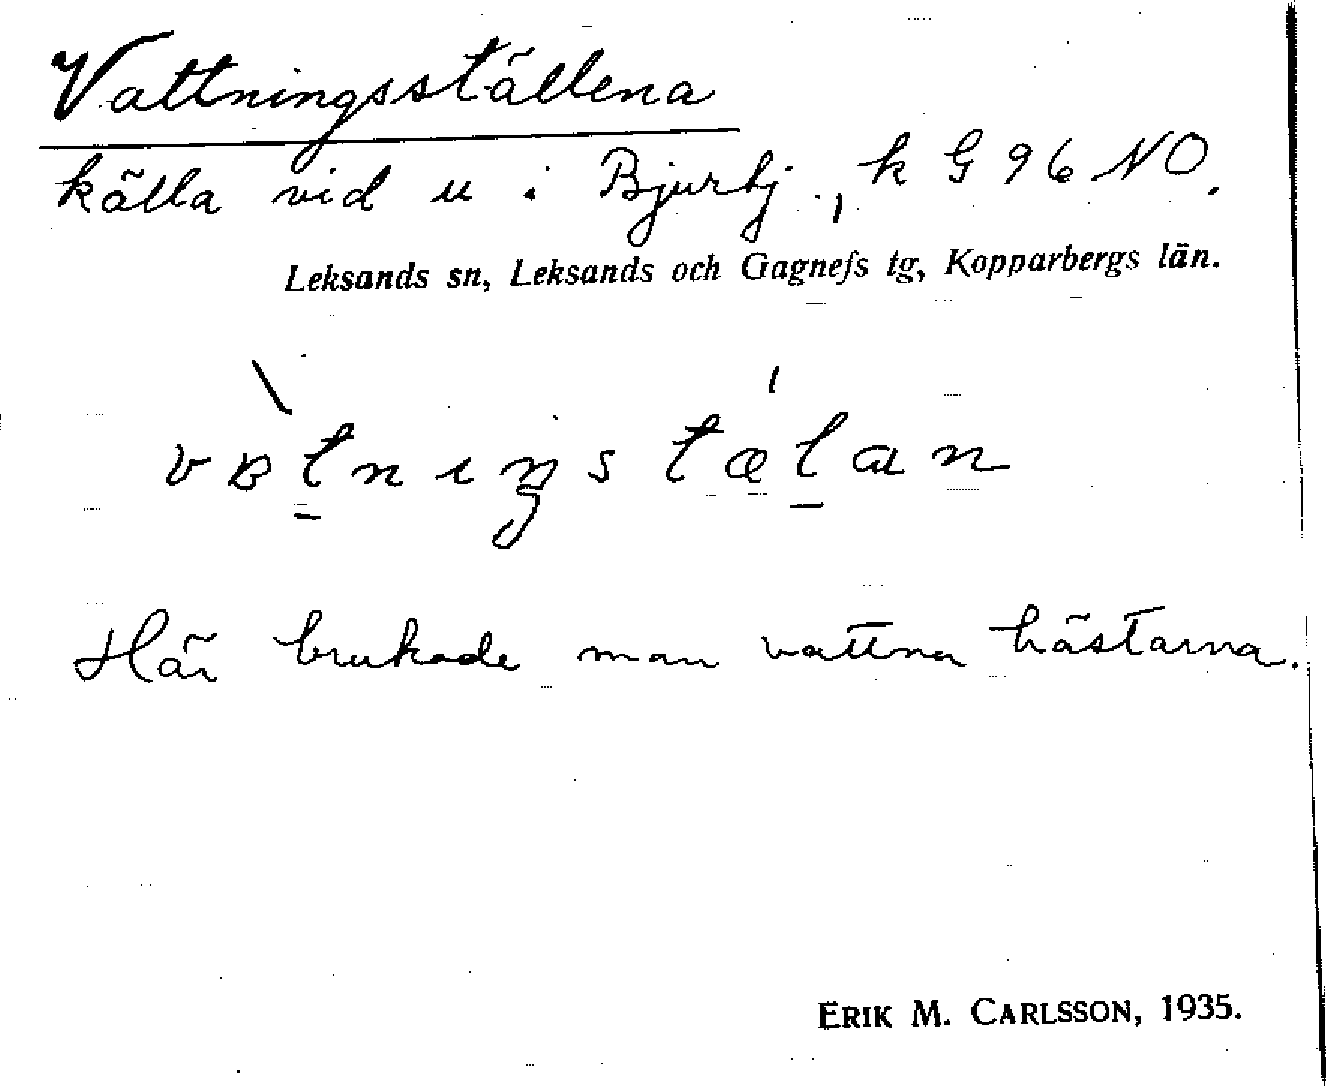 Vattningsställena
källa vid u i Bjurbj., k G 96 NO.
Leksands sn, Leksands och Gagnefs tg, Kopparbergs län.
vɒt̠nɩŋstæl̠an
Här brukade man vattna hästarna.
ERIK M. CARLSSON, 1935.